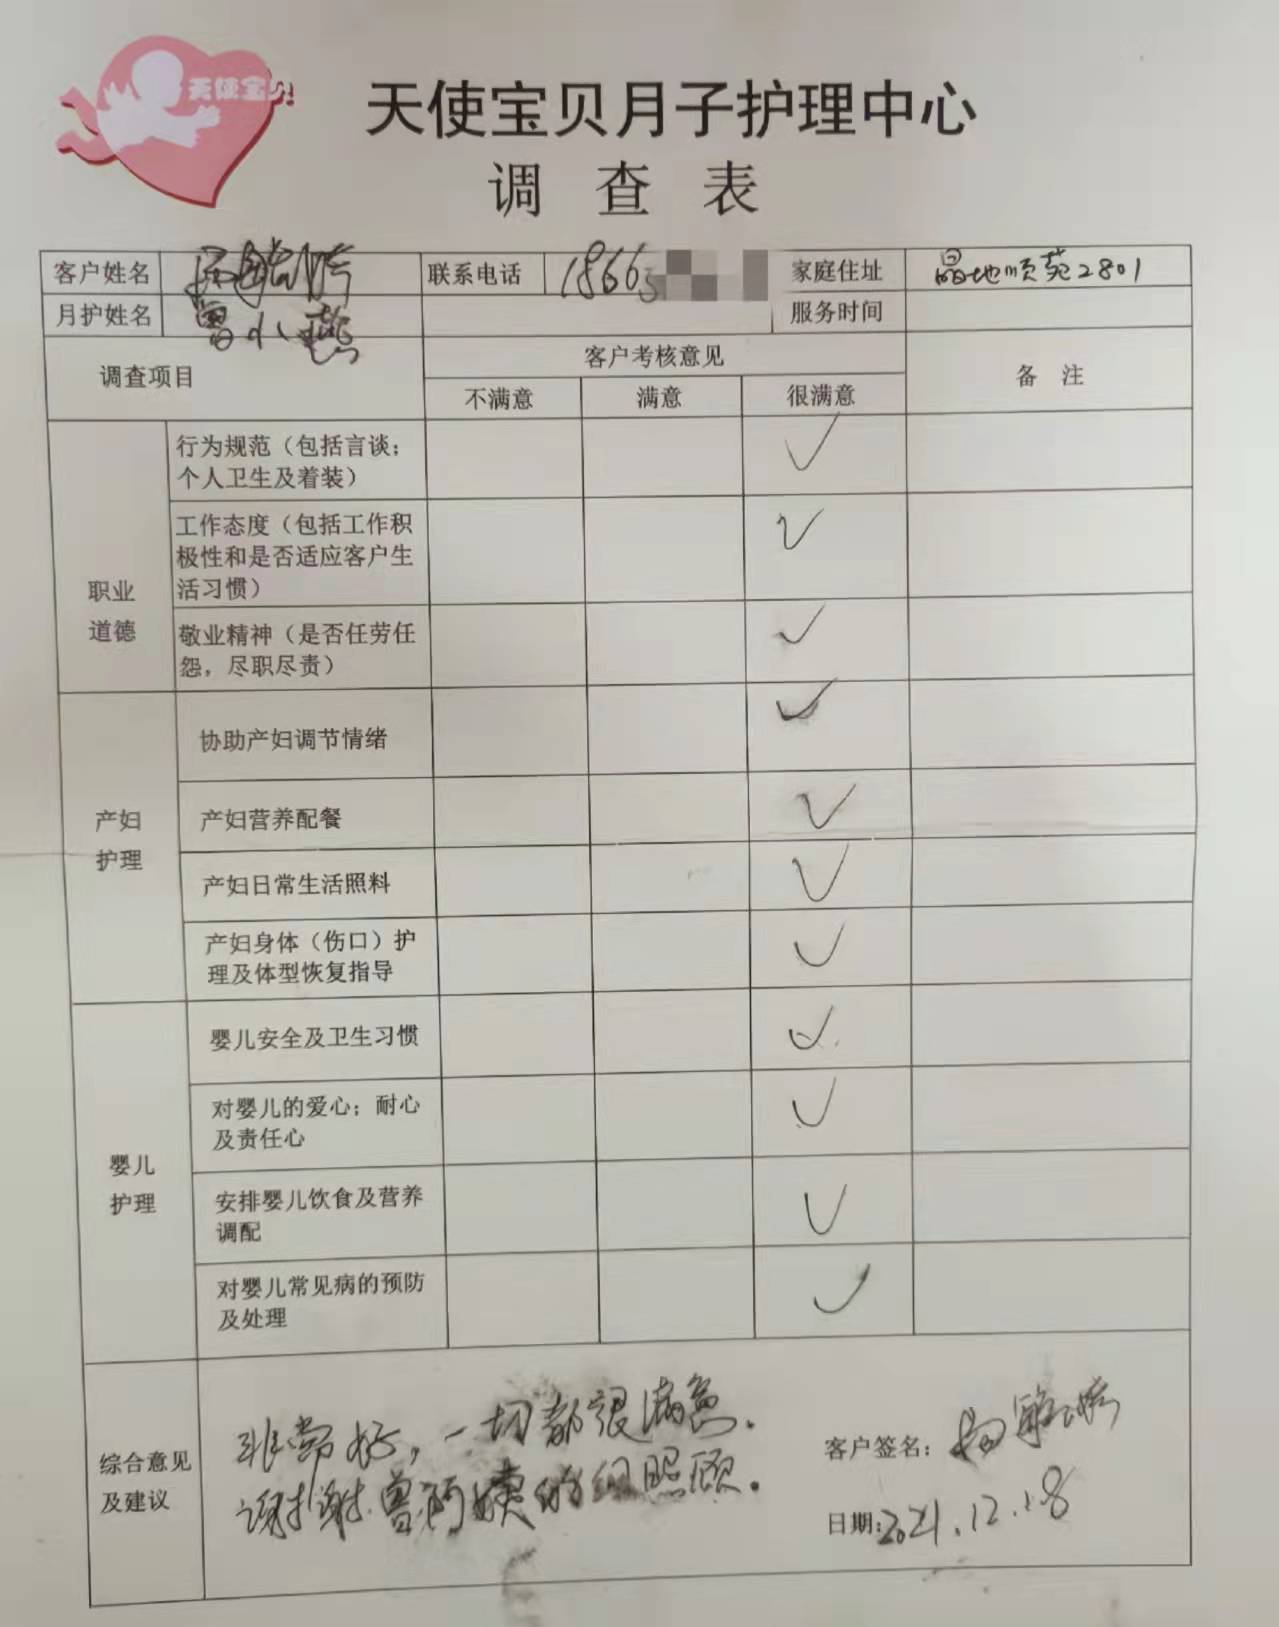 天使宝贝
天使宝贝月子护理中心
调 查 表
客户姓名 联系电话 1866 家庭住址 晶地顺苑2801
月护姓名 曾小燕 服务时间
调查项目 客户考核意见 备 注
不满意 满意 很满意
职业
道德
行为规范（包括言谈；
个人卫生及着装）
工作态度（包括工作积
极性和是否适应客户生
活习惯）
敬业精神（是否任劳任
怨，尽职尽责）
产妇
护理
协助产妇调节情绪
产妇营养配餐
产妇日常生活照料
产妇身体（伤口）护
理及体型恢复指导
婴儿
护理
婴儿安全及卫生习惯
对婴儿的爱心；耐心
及责任心
安排婴儿饮食及营养
调配
对婴儿常见病的预防
及处理
综合意见
及建议
非常好，一切都很满意.
谢谢曾阿姨的照顾.
客户签名：
日期：2021.12.18